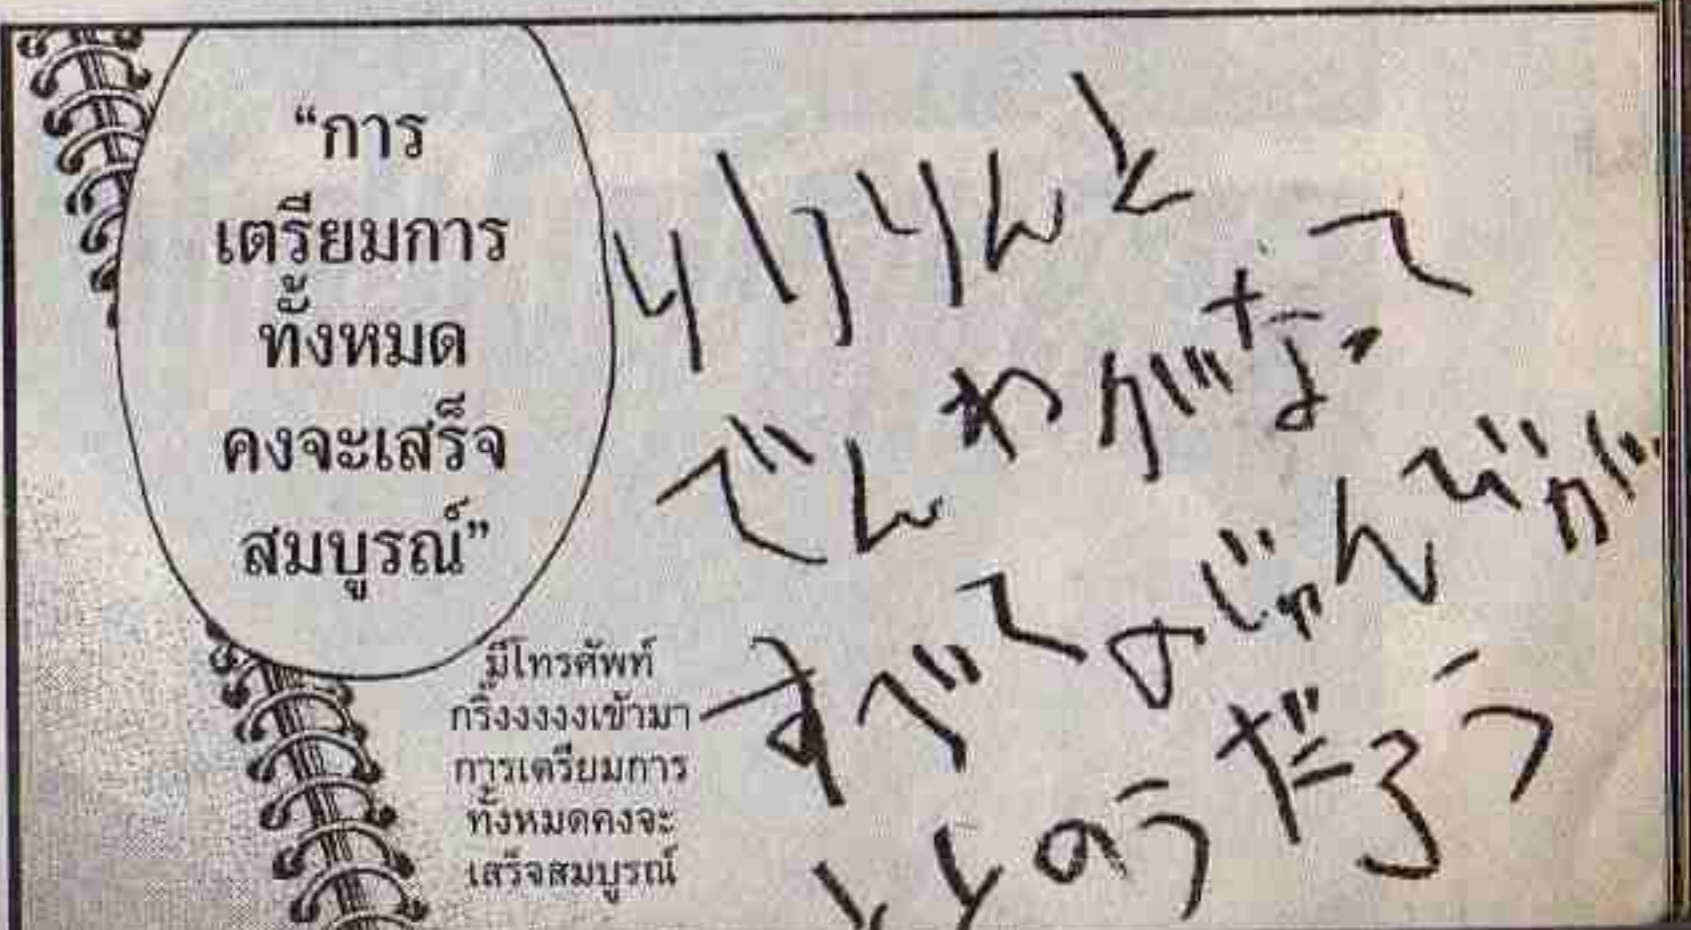 “การ
เตรียมการ
ทั้งหมด
คงจะเสร็จ
สมบูรณ์”
มีโทรศัพท์
กริ๊งงงงงเข้ามา
การเตรียมการ
ทั้งหมดคงจะ
เสร็จสมบูรณ์
りりりんと
でんわがなって
すべてのじゅんびが
ととのうだろう